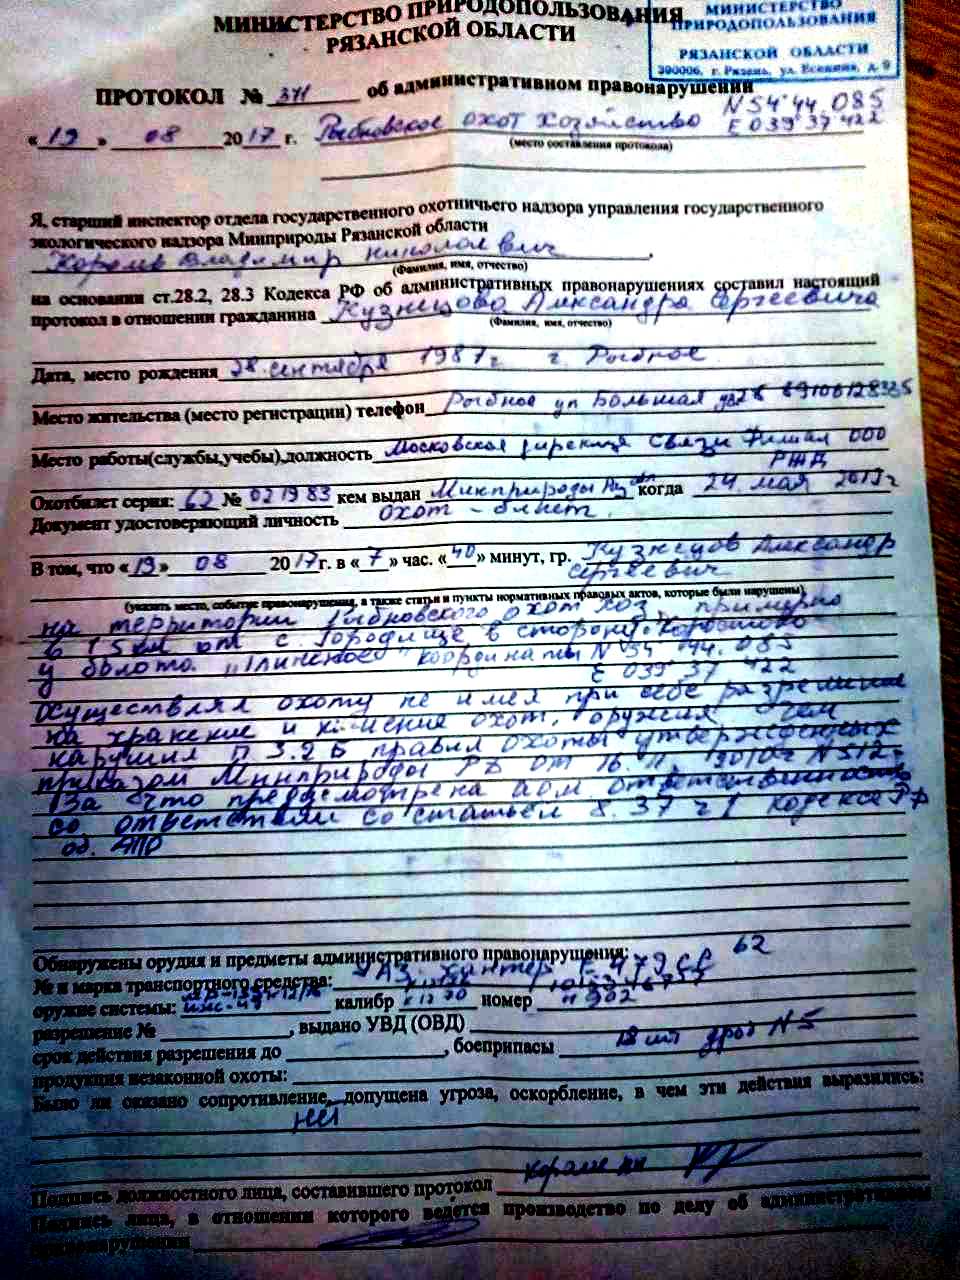 МИНИСТЕРСТВО ПРИРОДОПОЛЬЗОВАНИЯ
РЯЗАНСКОЙ ОБЛАСТИ
МИНИСТЕРСТВО
ПРИРОДОПОЛЬЗОВАНИЯ
РЯЗАНСКОЙ ОБЛАСТИ
390006, г. Рязань, ул. Есенина, д. 9
ПРОТОКОЛ № 371 об административном правонарушении
«19» 08 2017 г. Рыбновское охот хозяйство N 54° 44. 085
E 039° 37 422
(место составления протокола)
Я, старший инспектор отдела государственного охотничьего надзора управления государственного
экологического надзора Минприроды Рязанской области
Владимир Николаевич
(Фамилия, имя, отчество)
на основании ст.28.2, 28.3 Кодекса РФ об административных правонарушениях составил настоящий
протокол в отношении гражданина Кузнецова Александра Сергеевича
(Фамилия, имя, отчество)
Дата, место рождения 28 сентября 1987г г Рыбное
Место жительства (место регистрации) телефон Рыбное ул Большая
Место работы(службы,учебы),должность Московская дирекция связи Филиал ООО
РЖД
Охотбилет серия: 62 № 021983 кем выдан Минприроды когда 24 мая
Документ удостоверяющий личность охот-билет.
В том, что «19» 08 2017г. в «7» час. «40» минут, гр. Кузнецов Александр
Сергеевич
(указать место, событие правонарушения, а также статьи и пункты нормативных правовых актов, которые были нарушены)
на территории Рыбновского охот хоз, примерно
в 1,5 км от с. Городище в сторону
у болото "Глинское" координаты N 54 44. 085
E 039° 37 422
осуществлял охоту не имея при себе разрешение
на хранение и ношение охот. оружия чем
нарушил п 3.2 Б правил охоты утвержденных
приказом Минприроды РФ от 16. 11. 2010г N 512.
За что предусмотрена адм. ответственность
со статьей 8. 37 ч 1 Кодекса РФ
об. АПР
Обнаружены орудия и предметы административного правонарушения:
№ и марка транспортного средства: УАЗ Хантер 62
оружие системы: калибр к 12 номер
разрешение № , выдано УВД (ОВД)
срок действия разрешения до , боеприпасы 18 шт дробь N 5
продукция незаконной охоты:
Было ли оказано сопротивление, допущена угроза, оскорбление, в чем эти действия выразились:
нет
Подпись должностного лица, составившего протокол
Подпись лица, в отношении которого ведется производство по делу об административном
правонарушении